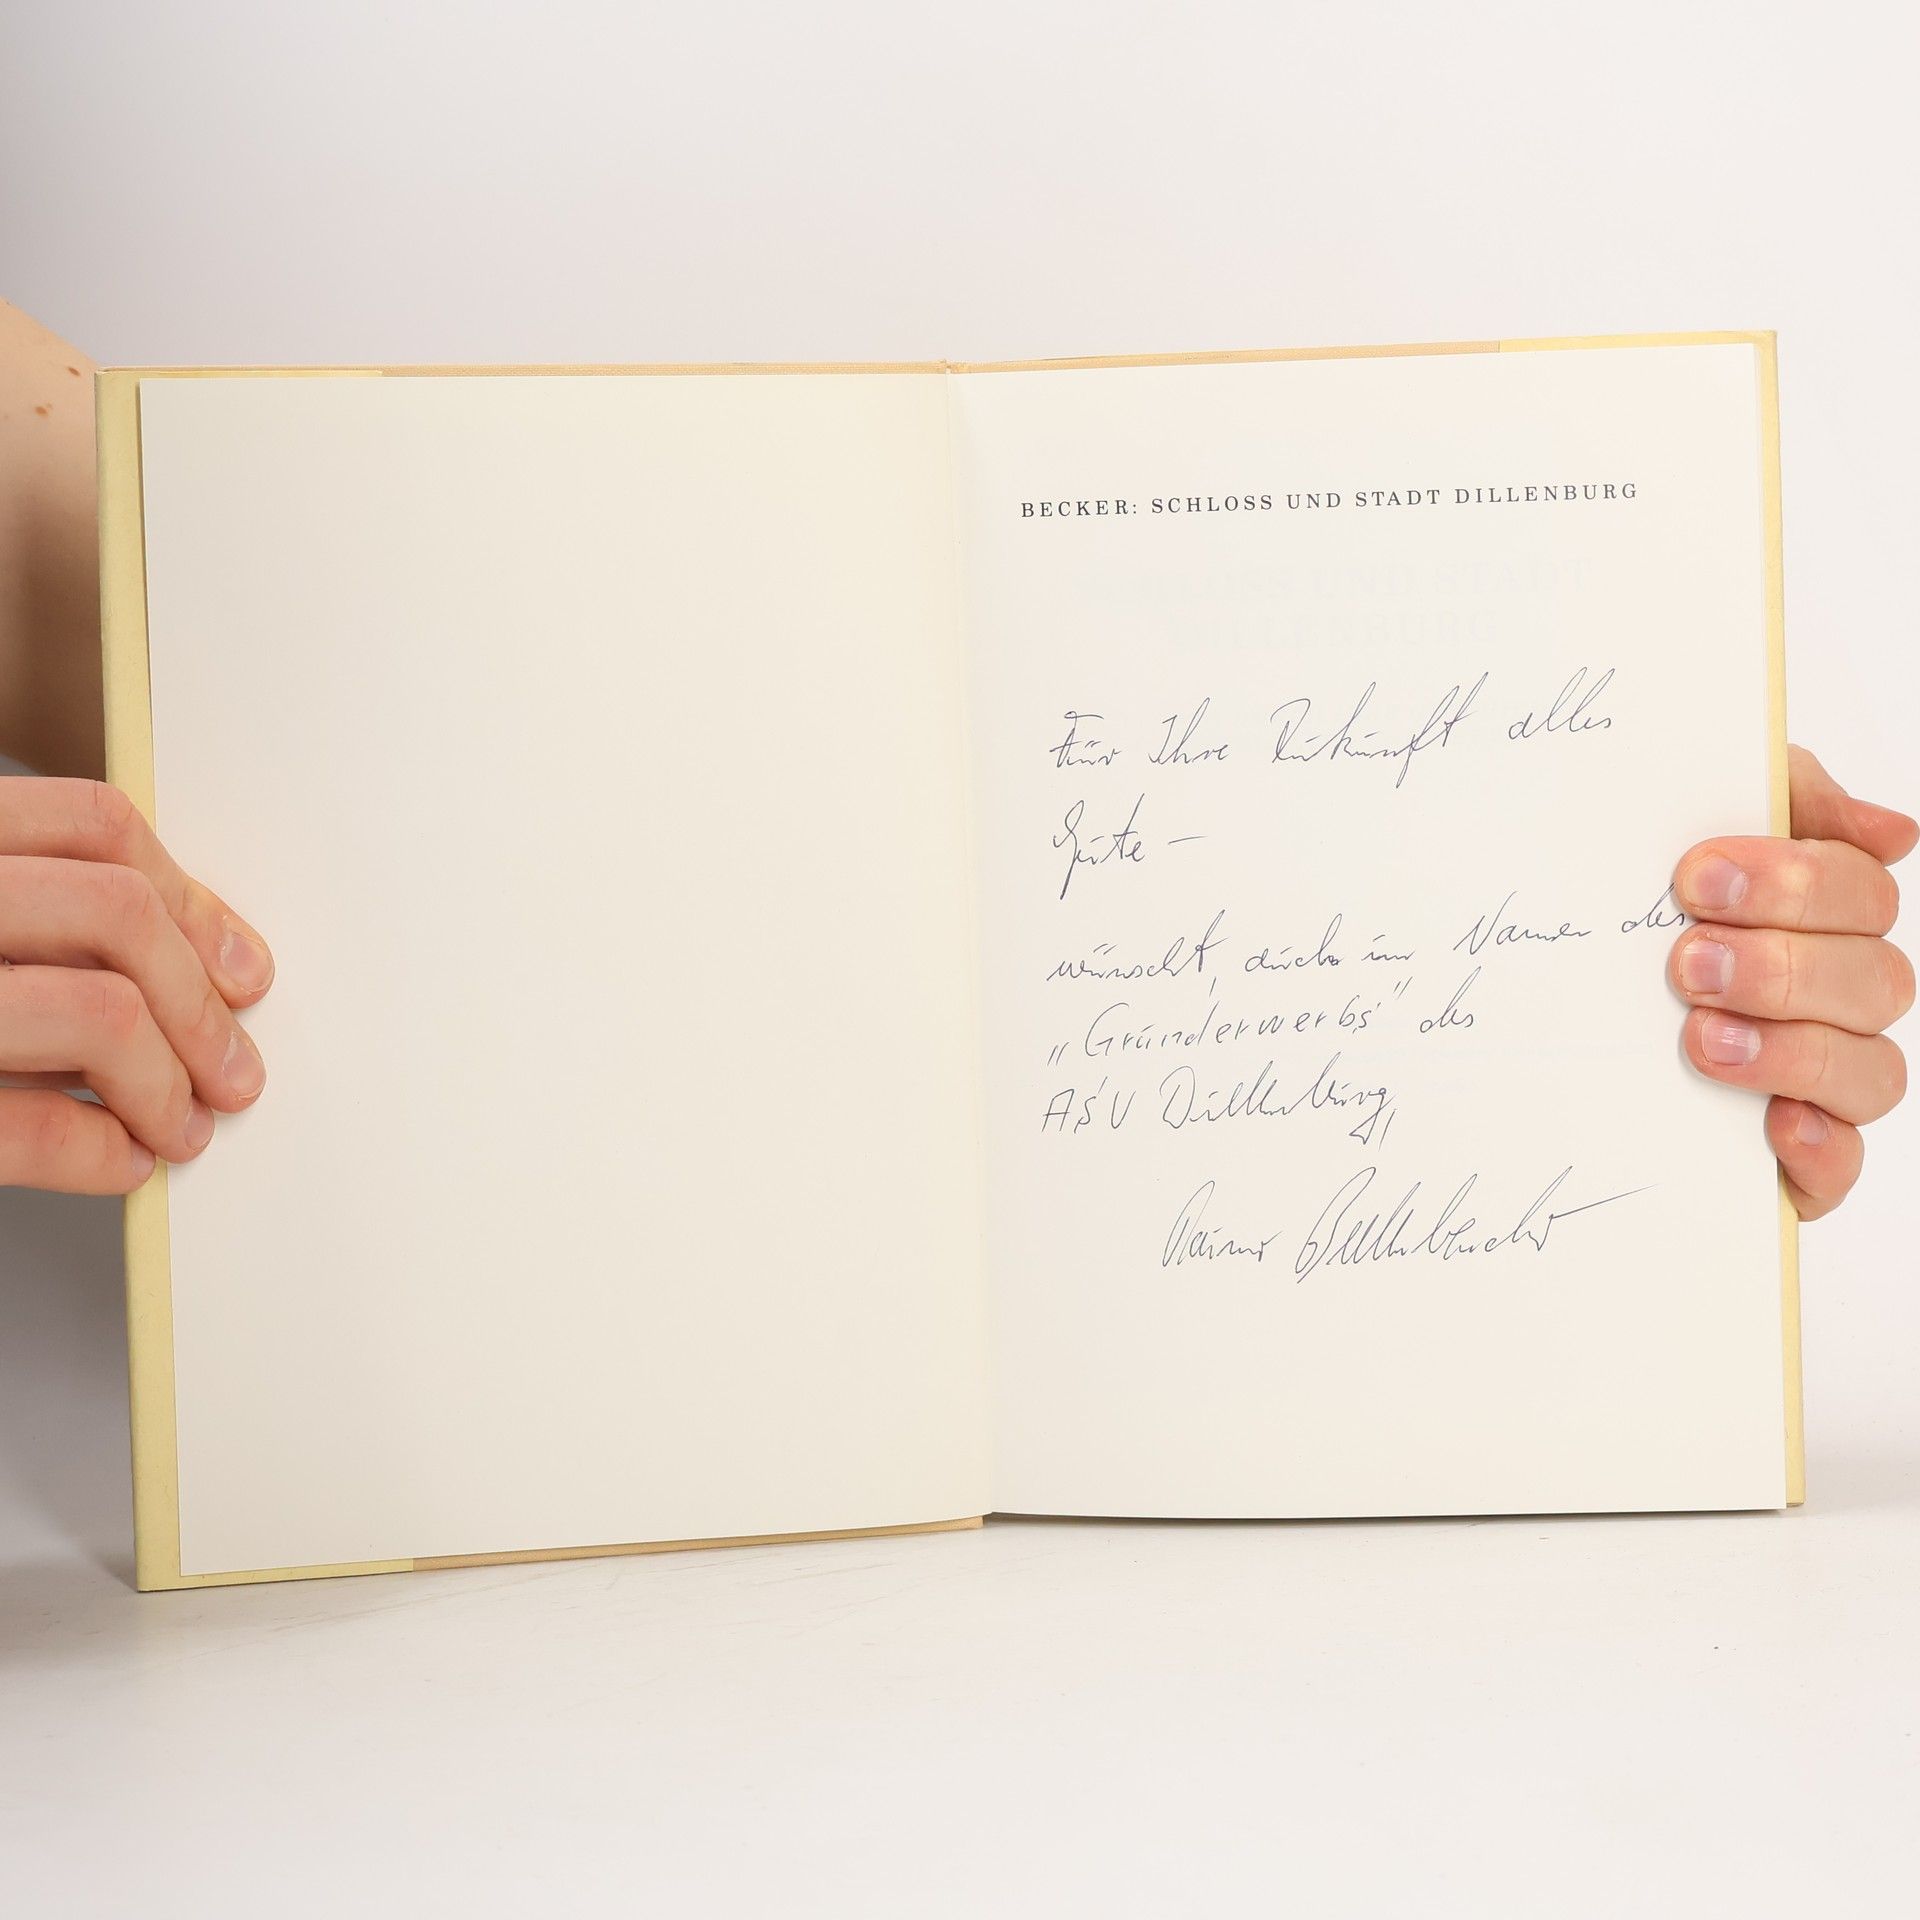 BECKER: SCHLOSS UND STADT DILLENBURG
SCHLOSS UND STADT
DILLENBURG
Für Ihre Zukunft alles
Gute –
wünscht, auch im Namen des
„Grunderwerbs" des
ASV Dillenburg,
Rainer